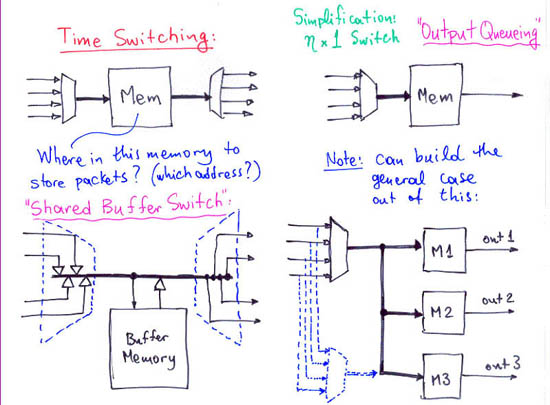 Time Switching:
Mem
Where in this memory to
store packets? (which address?)
"Shared Buffer Switch":
Buffer
Memory
Simplification:
n x 1 Switch
"Output Queueing"
Mem
Note: can build the
general case
out of this:
M1
out 1
M2
out 2
M3
out 3